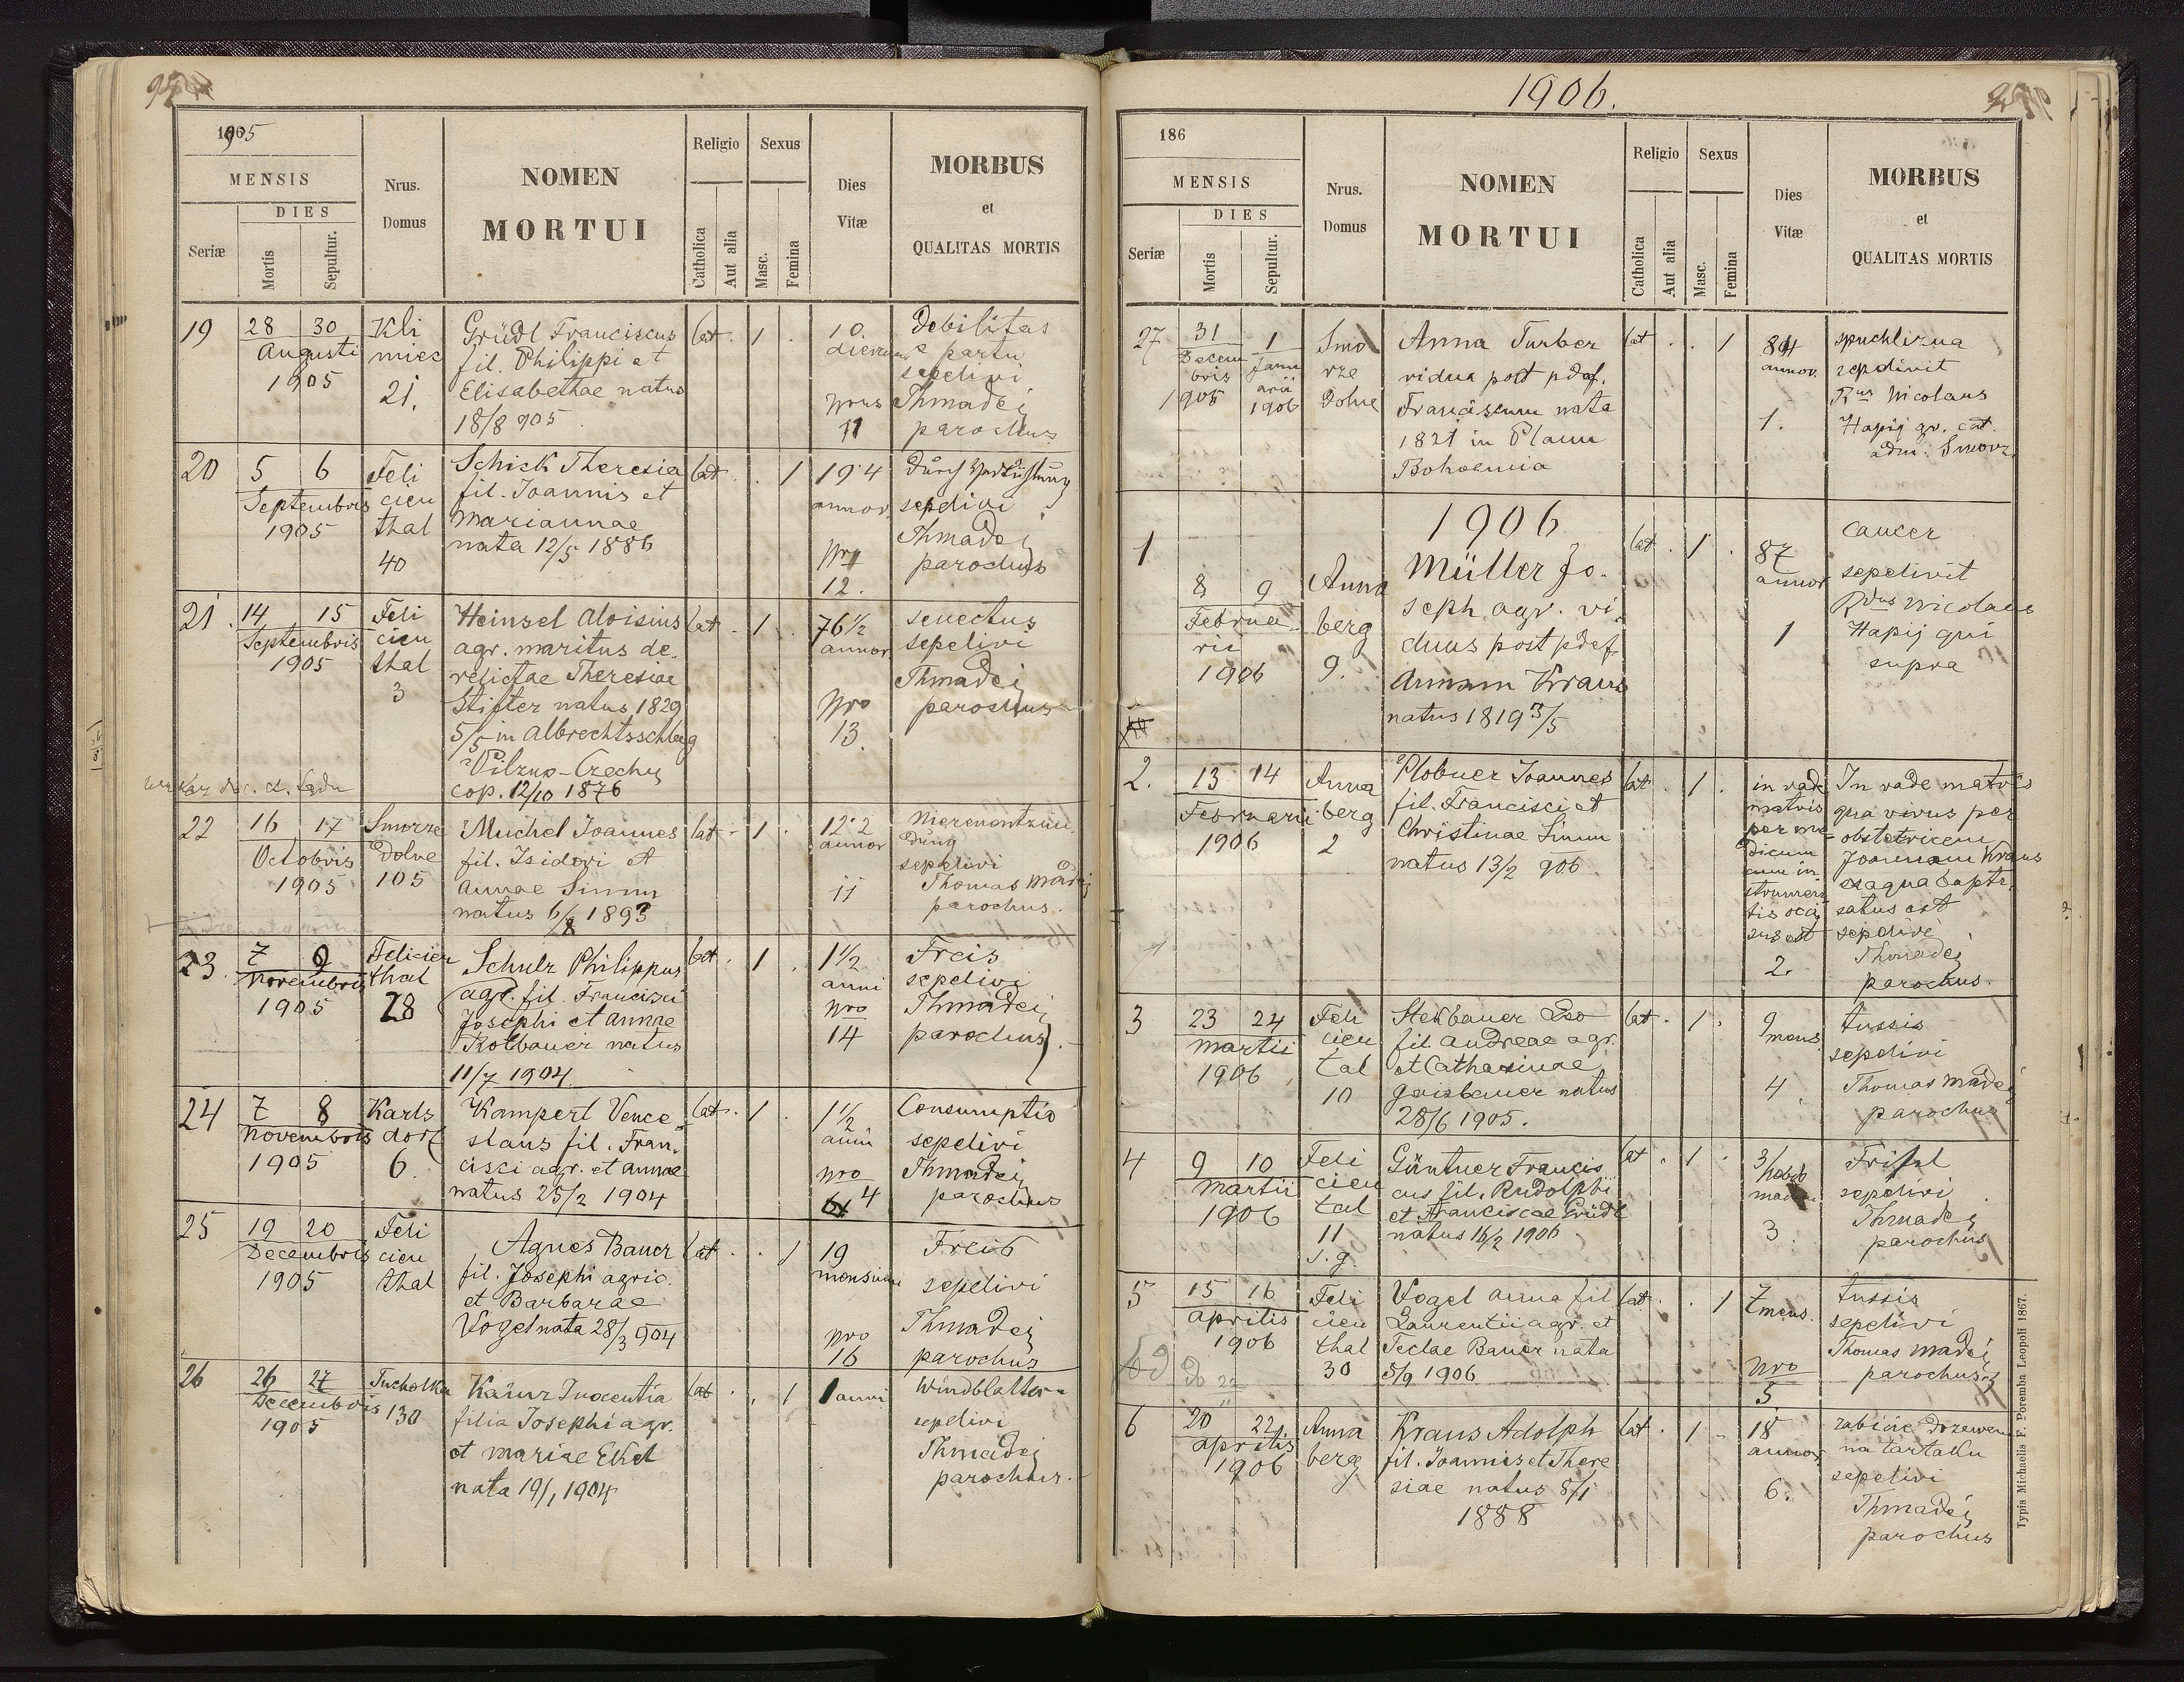 1905
MENSIS
DIES
Seriæ
Mortis
Sepultur.
Nrus.
Domus
NOMEN
MORTUI
Religio
Catholica
Aut alia
Sexus
Masc.
Femina
Dies
Vitæ
MORBUS
et
QUALITAS MORTIS
19
28 30
Augusti
1905
Kli
miec
21.
Grüdl Franciscus
fil. Philippi et
Elisabethae natus
18/8 905
Lat. 1
10.
dierum
Nrus
11
Debilitas
e partu
sepelivi
Thmadej
parochus
20
5 6
Septembris
1905
Feli
cien
thal
40
Schick Theresia
fil. Joannis et
Mariannae
nata 12/5 1886
Lat. 1
19 4
annor.
Nr
12.
sepelivi
Thmadej
parochus
21.
14 15
Septembris
1905
Feli
cien
thal
3
Heinsel Aloisius
agr. maritus de
relictae Theresiae
Stifter natus 1829
5/5 in Albrechtsschlag
Pilzno-Czechy
cop. 12/10 1876
Lat. 1
76 1/2
annor
Nro
13.
senectus
sepelivi
Thmadej
parochus
22
16 17
Octobris
1905
Smorze
dolne
105
Muchel Joannes
fil. Isidori et
Annae Simm
natus 6/8 1893
Lat. 1
12 2
annor
11
Nierenentzün
dung
sepelivi
Thomas Madej
parochus.
23.
7 9
Novembris
1905
Felicien
thal
28
Schulz Philippus
agr. fil. Francisci
Josephi et Annae
Rotbauer natus
11/7 1904.
Lat. 1
1 1/2
anni
Nro
14
Freis
sepelivi
Thmadej
parochus
24
7 8
Novembris
1905
Karls
dorf
6.
Kampert Vence
slaus fil. Fran
cisci agr. et Annae
natus 25/2 1904
Lat. 1
1 1/2
anni
Nro
4
Consumptio
sepelivi
Thmadej
parochus
25
19 20
Decembris
1905
Feli
cien
thal
Agnes Bauer
fil. Josephi agric.
et Barbarae
Vogel nata 28/3 904
Lat. 1
19
mensium
Nro
16
Freis
sepelivi
Thmadej
parochus
26
26 27
Decembris
1905
Tucholka
130
Kainz Inocentia
filia Josephi agr.
et Mariae Ekel
nata 19/1 1904
Lat. 1
1 anni
Windblatter
sepelivi
Thmadej
parochus.
1906.
186
MENSIS
DIES
Seriæ
Mortis
Sepultur.
Nrus.
Domus
NOMEN
MORTUI
Religio
Catholica
Aut alia
Sexus
Masc.
Femina
Dies
Vitæ
MORBUS
et
QUALITAS MORTIS
27
31 1
Decem
bris
1905
Janu
arii
1906
Smo
rze
Dolne
Anna Turber
vidua post pdef.
Franciscum nata
1821 in Plann
Bohoemia
Lat. 1
84
annor.
1.
spuchlizna
sepelivit
Rus Nicolaus
Hapij gr. cat.
adm. Smorz.
1906
1
8 9
Februa
rii
1906
Anna
berg
9.
Müller Jo.
seph agr. vi
duus post pdef.
Annam Kraus
natus 1819 3/5
Lat. 1
87
annor
1
cancer
sepelivit
Rdus Nicolaus
Hapij qui
supra
2.
13 14
Februarii
1906
Anna
berg
2
Plobner Joannes
fil. Francisci et
Christinae Simm
natus 13/2 906
Lat. 1
matris
per me
dicum
cum in
strumen
tis occi
sus est
2.
qua vivus per
obstetricem
Joannam Kraus
ex aqua bapti
satus est
sepelivi
Thmadej
parochus.
3
23 24
Martii
1906
Feli
cien
tal
10
Stekbauer Leo
fil. Andreae agr.
et Catharinae
Gaisbauer natus
28/6 1905.
Lat. 1
9
mens.
4.
tussis
sepelivi
Thomas Madej
parochus
4
9 10
Martii
1906
Feli
cien
tal
11
Güntner Francis
cus fil. Rudolphi
et Franciscae Grüdl
natus 16/2 1906
Lat. 1
3.
sepelivi
Thmadej
parochus
5
15 16
Aprilis
1906
Feli
cien
thal
30
Vogel Anna fil
Laurentii agr. et
Teclae Bauer nata
5/9 1906
Lat. 1
7 mens.
Nro
5
tussis
sepelivi
Thomas Madej
parochus
6
20 22
Aprilis
1906
Anna
berg
Kraus Adolph
fil. Joannis et There
siae natus 8/1
1888
Lat. 1
18
annor.
6.
zabicie drzewem
na tartaku
sepelivi
Thmadej
parochus
Typis Michaelis F. Poremba Leopoli 1867.